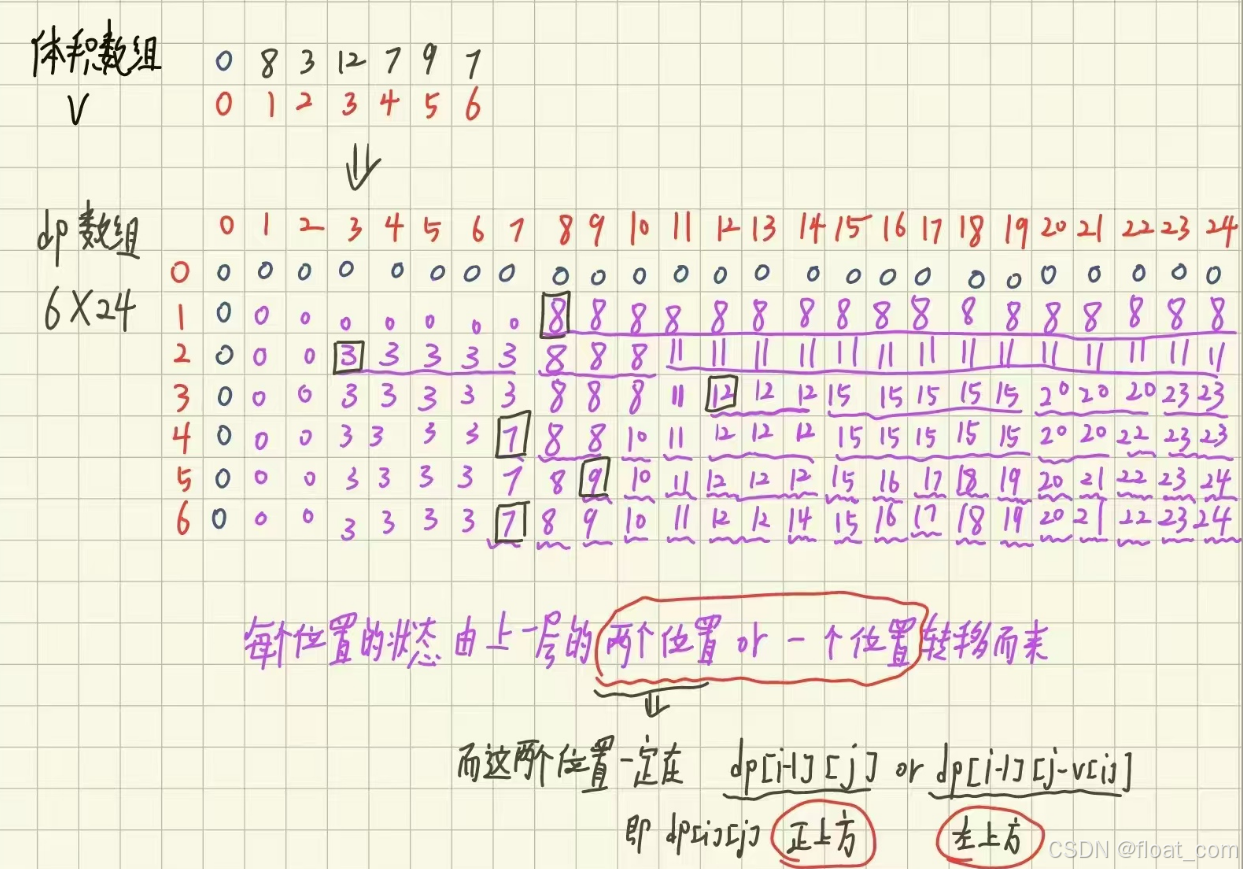 体积数组 0 8 3 12 7 9 7
V 0 1 2 3 4 5 6
dp数组 0 1 2 3 4 5 6 7 8 9 10 11 12 13 14 15 16 17 18 19 20 21 22 23 24
0 0 0 0 0 0 0 0 0 0 0 0 0 0 0 0 0 0 0 0 0 0 0 0 0 0
6X24 1 0 0 0 0 0 0 0 0 8 8 8 8 8 8 8 8 8 8 8 8 8 8 8 8 8
2 0 0 0 3 3 3 3 3 8 8 8 11 11 11 11 11 11 11 11 11 11 11 11 11 11
3 0 0 0 3 3 3 3 3 8 8 8 11 12 12 12 15 15 15 15 15 20 20 20 23 23
4 0 0 0 3 3 3 3 7 8 8 10 11 12 12 12 15 15 15 15 15 20 20 22 23 23
5 0 0 0 3 3 3 3 7 8 9 10 11 12 12 12 15 16 17 18 19 20 21 22 23 24
6 0 0 0 3 3 3 3 7 8 9 10 11 12 12 14 15 16 17 18 19 20 21 22 23 24
每个位置的状态由上一层的两个位置or一个位置转移而来
而这两个位置一定在 dp[i-1][j] or dp[i-1][j-v[i]]
即 dp[i][j] 正上方 左上方
CSDN @float_com